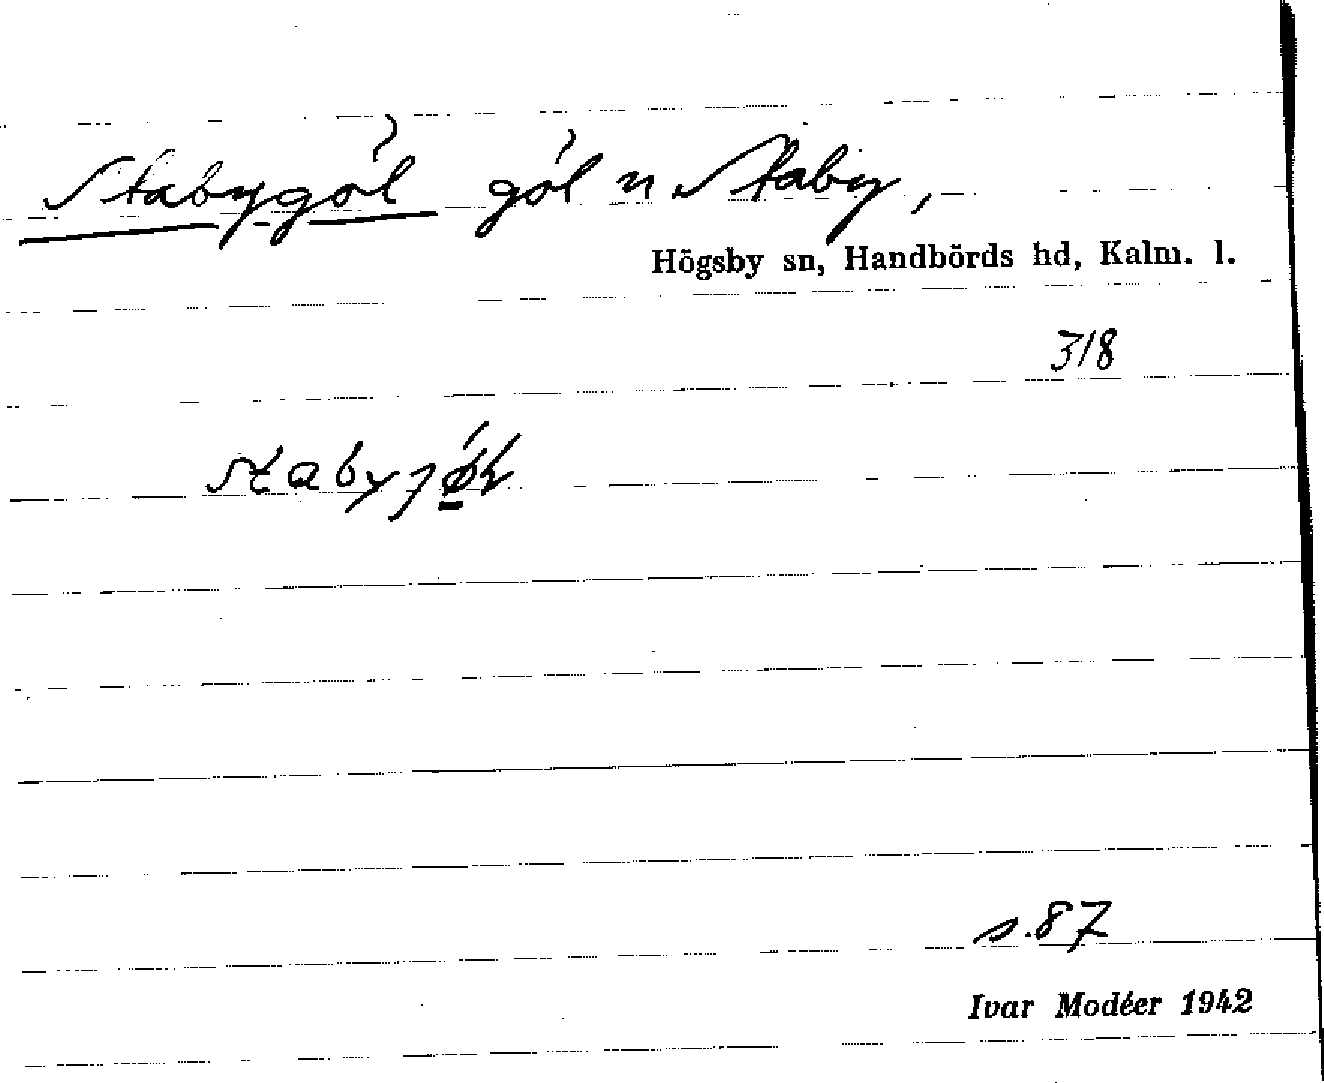 Stabygöl göl n Staby,
Högsby sn, Handbörds hd, Kalm. l.
318
s.87
Ivar Modéer 1942